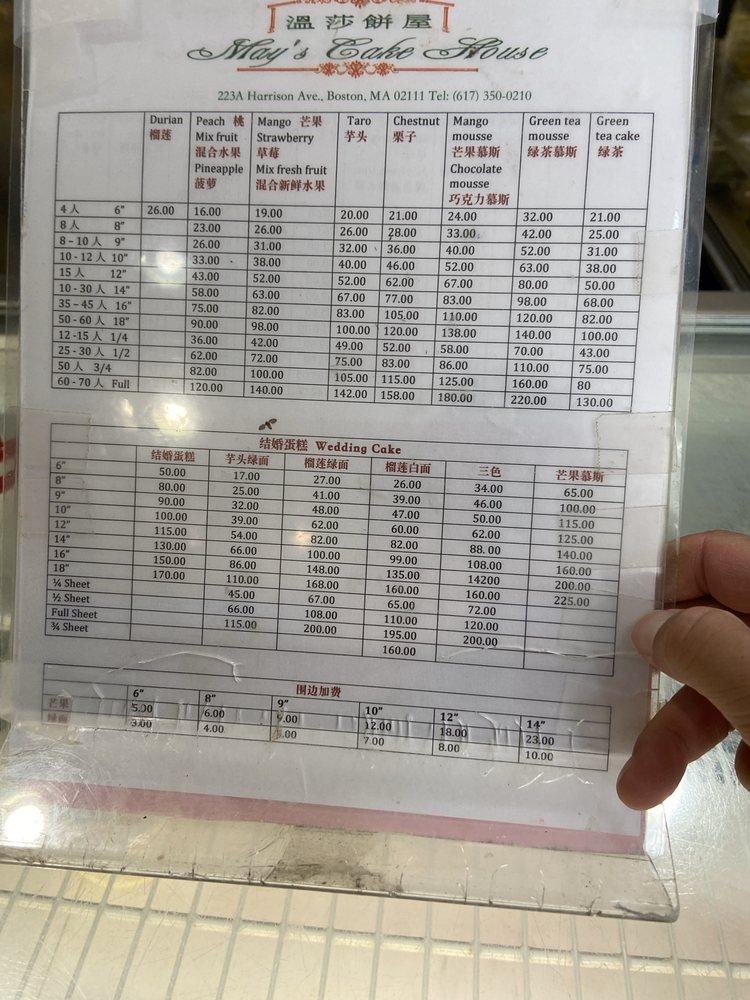 溫莎餅屋
May's Cake House
223A Harrison Ave., Boston, MA 02111 Tel: (617) 350-0210
Durian 榴莲
Peach 桃
Mix fruit
混合水果
Pineapple
菠萝
Mango 芒果
Strawberry
草莓
Mix fresh fruit
混合新鲜水果
Taro
芋头
Chestnut
栗子
Mango
mousse
芒果慕斯
Chocolate
mousse
巧克力慕斯
Green tea
mousse
绿茶慕斯
Green
tea cake
绿茶
4 人 6" 26.00 16.00 19.00 20.00 21.00 24.00 32.00 21.00
8 人 8" 23.00 26.00 26.00 28.00 33.00 42.00 25.00
8 – 10 人 9" 26.00 31.00 32.00 36.00 40.00 52.00 31.00
10 - 12 人 10" 33.00 38.00 40.00 46.00 52.00 63.00 38.00
15 人 12" 43.00 52.00 52.00 62.00 67.00 80.00 50.00
10 - 30 人 14" 58.00 63.00 67.00 77.00 83.00 98.00 68.00
35 – 45 人 16" 75.00 82.00 83.00 105.00 110.00 120.00 82.00
50 - 60 人 18" 90.00 98.00 100.00 120.00 138.00 140.00 100.00
12 -15 人 1/4 36.00 42.00 49.00 52.00 58.00 70.00 43.00
25 - 30 人 1/2 62.00 72.00 75.00 83.00 86.00 110.00 75.00
50 人 3/4 82.00 100.00 105.00 115.00 125.00 160.00 80
60 - 70 人 Full 120.00 140.00 142.00 158.00 180.00 220.00 130.00
结婚蛋糕 Wedding Cake
结婚蛋糕 芋头绿面 榴莲绿面 榴莲白面 三色 芒果慕斯
6" 50.00 17.00 27.00 26.00 34.00 65.00
8" 80.00 25.00 41.00 39.00 46.00 100.00
9" 90.00 32.00 48.00 47.00 50.00 115.00
10" 100.00 39.00 62.00 60.00 62.00 125.00
12" 115.00 54.00 82.00 82.00 88. 00 140.00
14" 130.00 66.00 100.00 99.00 108.00 160.00
16" 150.00 86.00 148.00 135.00 14200 200.00
18" 170.00 110.00 168.00 160.00 160.00 225.00
¼ Sheet 45.00 67.00 65.00 72.00
½ Sheet 66.00 108.00 110.00 120.00
Full Sheet 115.00 200.00 195.00 200.00
¾ Sheet 160.00
围边加费
6" 8" 9" 10" 12" 14"
芒果 5.00 6.00 9.00 12.00 18.00 23.00
绿面 3.00 4.00 7.00 8.00 10.00